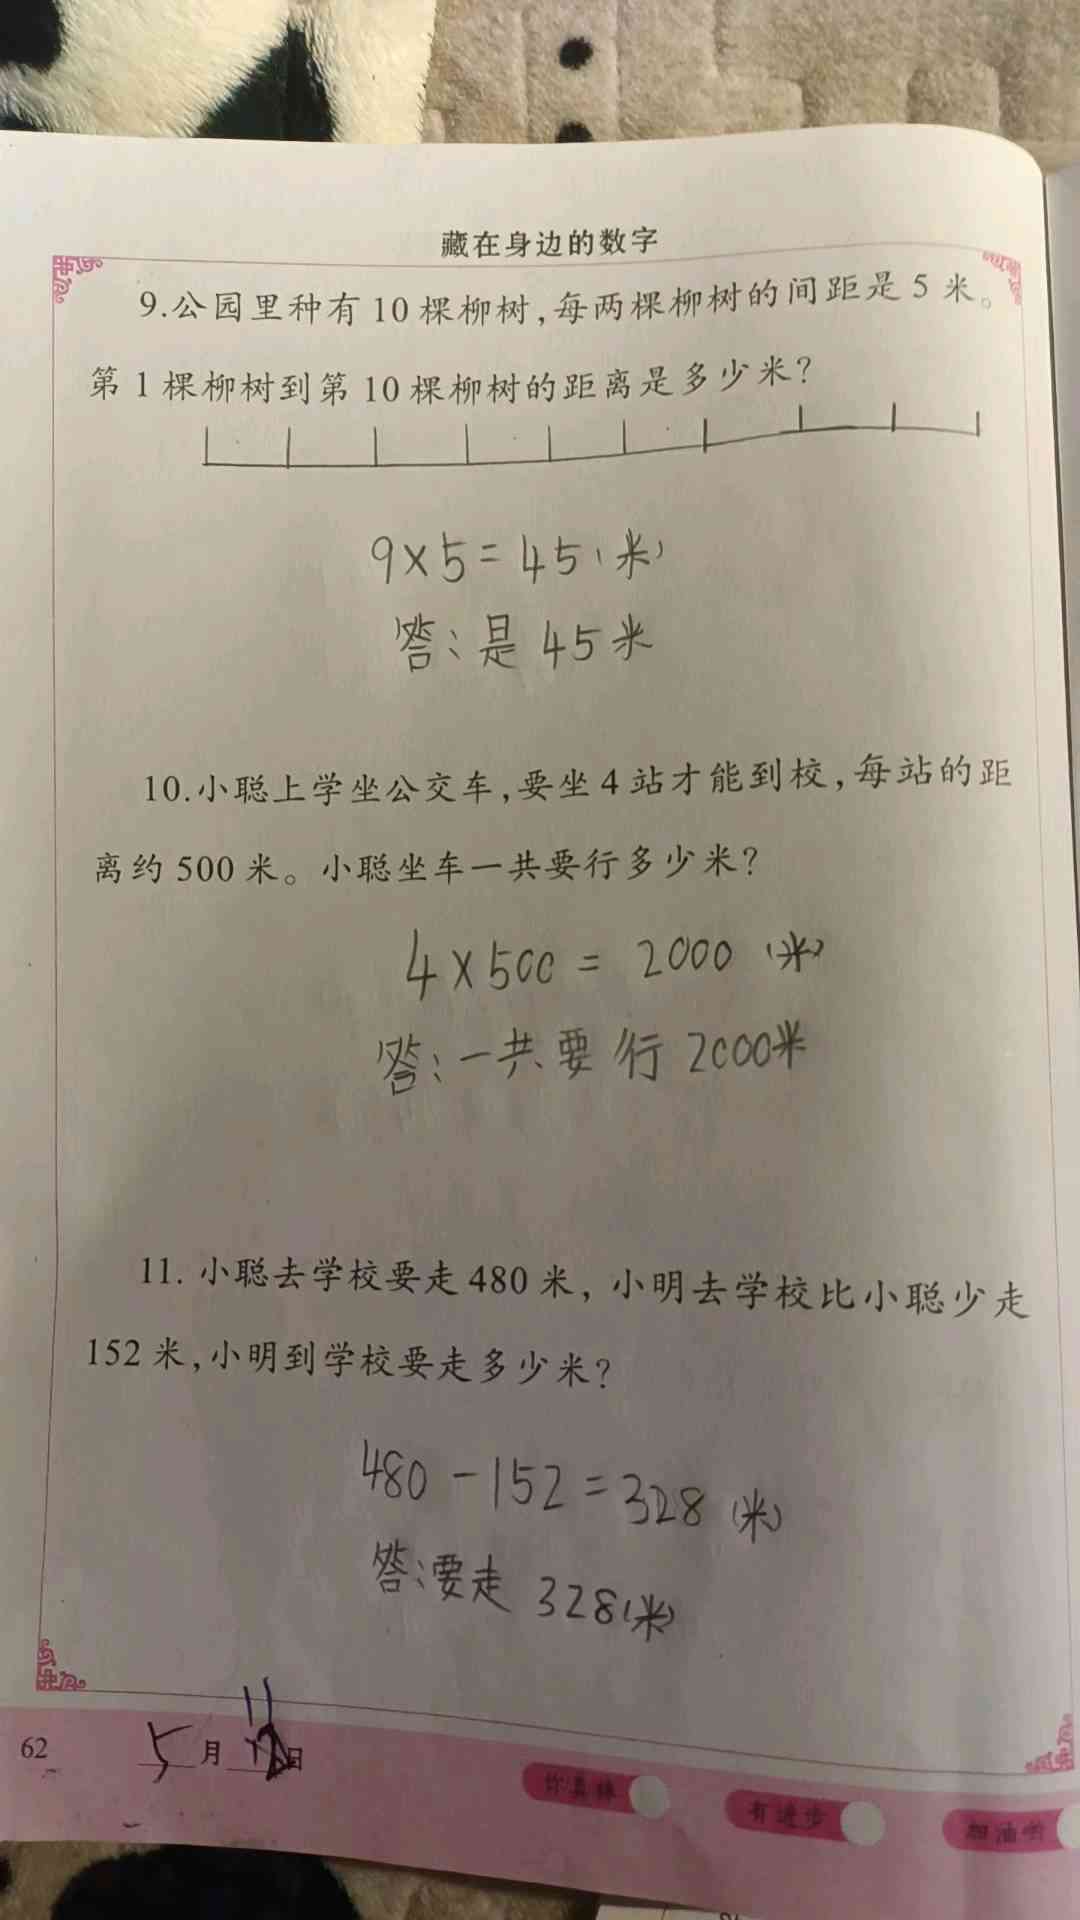 藏在身边的数字
9.公园里种有10棵柳树,每两棵柳树的间距是5米。
第1棵柳树到第10棵柳树的距离是多少米?
9×5=45(米)
答:是45米
10.小聪上学坐公交车,要坐4站才能到校,每站的距
离约500米。小聪坐车一共要行多少米?
4×500=2000(米)
答:一共要行2000米
11.小聪去学校要走480米,小明去学校比小聪少走
152米,小明到学校要走多少米?
480-152=328(米)
答:要走328(米)
11
62 5月日
你真棒 有进步 加油哟